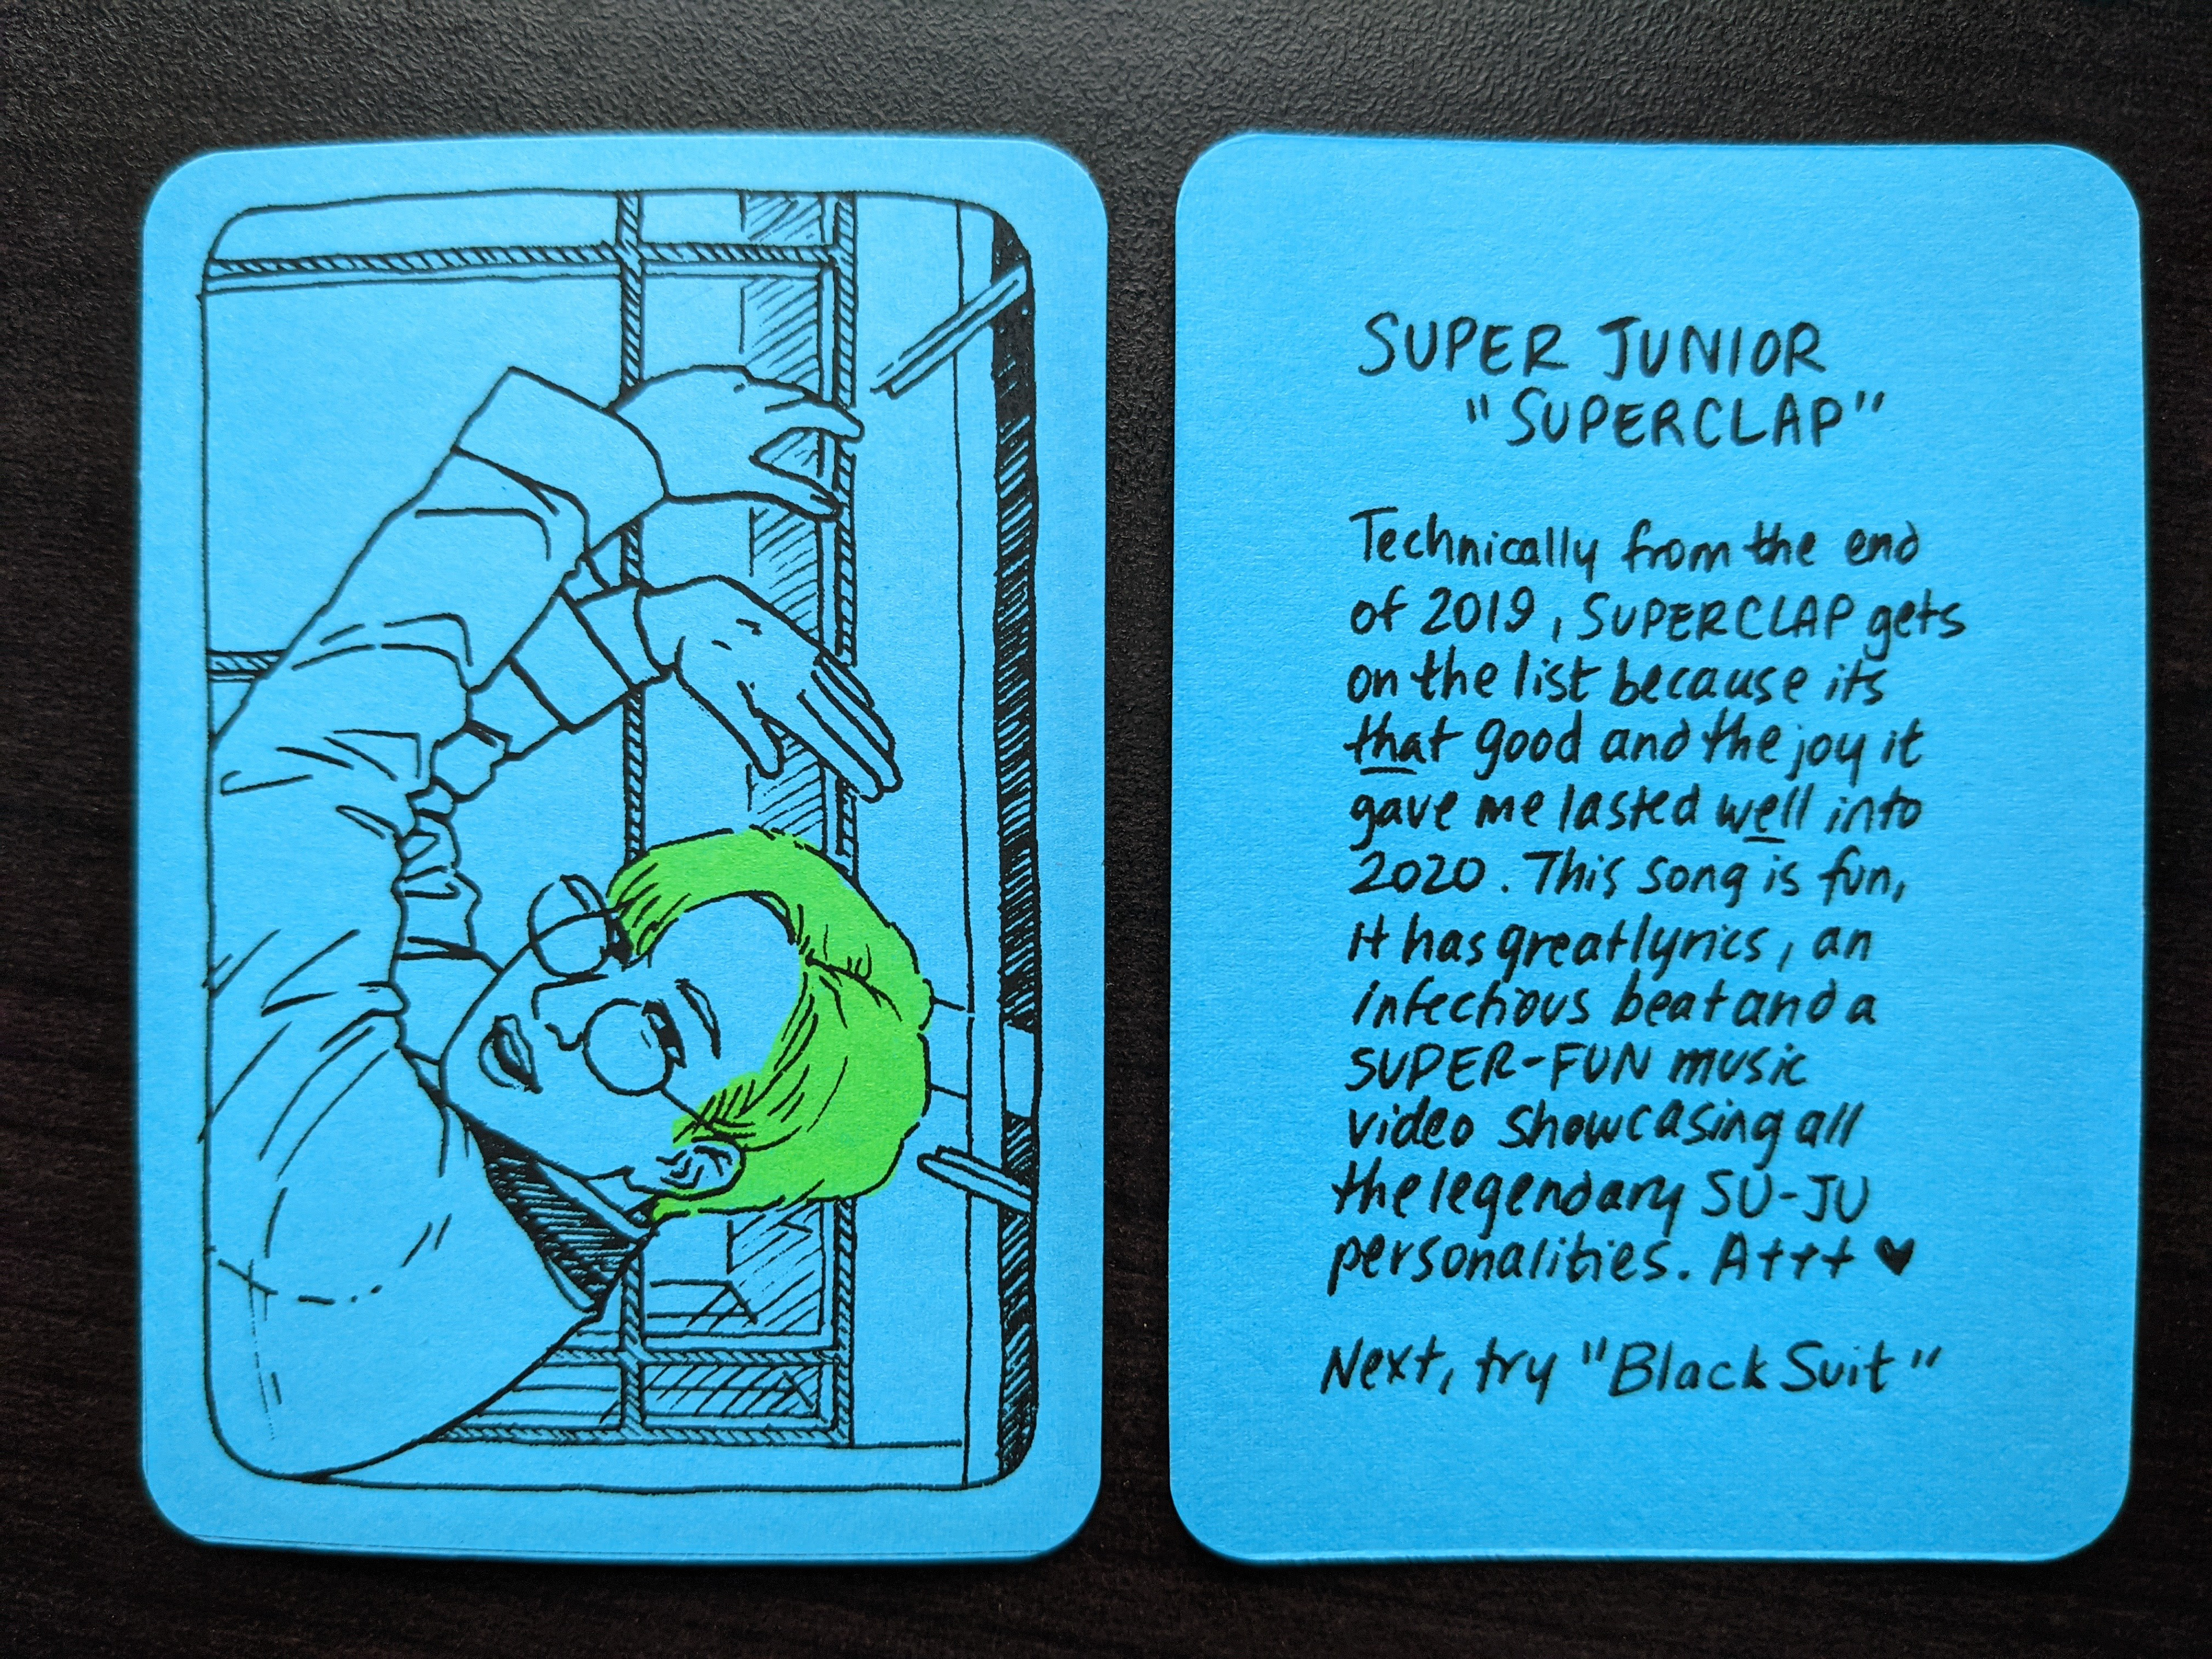 SUPER JUNIOR
"SUPERCLAP"
Technically from the end
of 2019, SUPERCLAP gets
on the list because its
that good and the joy it
gave me lasted well into
2020. This song is fun,
it has great lyrics, an
infectious beat and a
SUPER-FUN music
video showcasing all
the legendary SU-JU
personalities. A+++ ♥
Next, try "Black Suit"